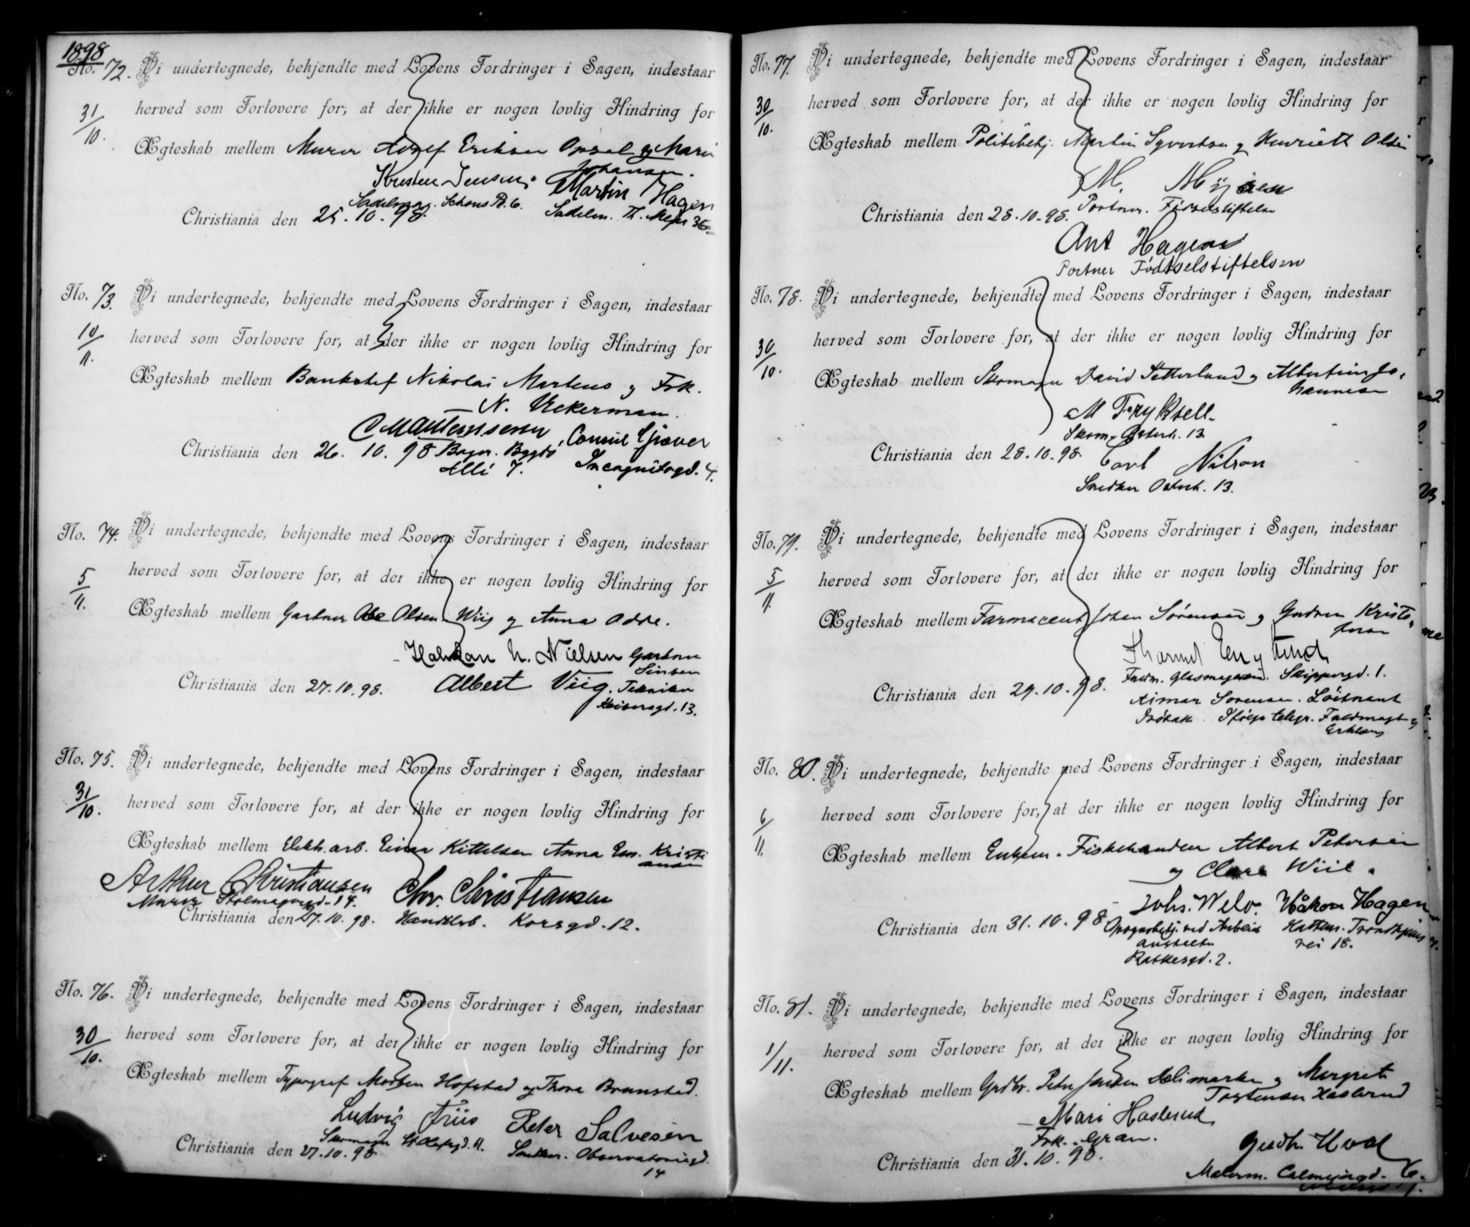 1898
No. 72. Vi undertegnede, bekjendte med Lovens Fordringer i Sagen, indestaar
31/10. herved som Forlovere for, at der ikke er nogen lovlig Hindring for
Ægteskab mellem Murer Eriksen og Marie
Johansen.
Kristen Jensen. Martin Hagen
Sadelmag. Schous Pl. 6. Sadelm. Th. 36
Christiania den 25.10.98.
No. 73. Vi undertegnede, bekjendte med Lovens Fordringer i Sagen, indestaar
10/11. herved som Forlovere for, at der ikke er nogen lovlig Hindring for
Ægteskab mellem Bankchef Nikolai Martens og Frk.
N. Uckerman.
Consul Gjæver
Christiania den 26.10.98 Bygdø Incognitogd. 4.
Alle 7.
No. 74. Vi undertegnede, bekjendte med Lovens Fordringer i Sagen, indestaar
5/11. herved som Forlovere for, at der ikke er nogen lovlig Hindring for
Ægteskab mellem Gartner Ole Olsen Wiig og Anna Odde.
Halvdan N. Nielsen Gartner
Sinsen
Christiania den 27.10.98. Albert Viig.
13.
No. 75. Vi undertegnede, bekjendte med Lovens Fordringer i Sagen, indestaar
31/10. herved som Forlovere for, at der ikke er nogen lovlig Hindring for
Ægteskab mellem Elekt. arb. Einar Kittelsen Anna Em. Kristi
ansen
Arthur Christiansen Chr. Christiansen
Murer 14.
Christiania den 27.10.98. Korsgd. 12.
No. 76. Vi undertegnede, bekjendte med Lovens Fordringer i Sagen, indestaar
30/10. herved som Forlovere for, at der ikke er nogen lovlig Hindring for
Ægteskab mellem Typograf Morten Hofstad og Thora Bramstad.
Ludvig Friis Peter Salvesen
Christiania den 27.10.98 Snedker. Observatoriegd.
14
No. 77. Vi undertegnede, bekjendte med Lovens Fordringer i Sagen, indestaar
30/10. herved som Forlovere for, at der ikke er nogen lovlig Hindring for
Ægteskab mellem Politibetj. Martin Syvertsen og Henriette Olsen
M.
Christiania den 28.10.98. Portner. Fødselsstiftelsen
Ant Hagen
Portner Fødtselstiftelsen
No. 78. Vi undertegnede, bekjendte med Lovens Fordringer i Sagen, indestaar
30/10. herved som Forlovere for, at der ikke er nogen lovlig Hindring for
Ægteskab mellem Skomager David Setterlund og Albertine Jo-
hannesen
M Fryksell.
Skom. Osterh. 13
Christiania den 28.10.98. Carl Nilson
Snedker Osterh. 13.
No. 79. Vi undertegnede, bekjendte med Lovens Fordringer i Sagen, indestaar
5/11. herved som Forlovere for, at der ikke er nogen lovlig Hindring for
Ægteskab mellem Farmaceut Johan Sørensen og Gudrun Kristo-
fersen
Skippergd. 1.
Christiania den 29.10.98. Aimar Sørensen. Løitnant
Ifølge telegr. Fuldmagt og
Erklæring
No. 80. Vi undertegnede, bekjendte med Lovens Fordringer i Sagen, indestaar
6/11. herved som Forlovere for, at der ikke er nogen lovlig Hindring for
Ægteskab mellem Enkem. Fiskehandler Albert Petersen
og Clara Wiil.
Johs. Welo. Håkon Hagen
Christiania den 31.10.98. Opsynsbetj. ved Arbeids Trondhjems
anstalten vei 18.
Rathkesgd. 2.
No. 81. Vi undertegnede, bekjendte med Lovens Fordringer i Sagen, indestaar
1/11. herved som Forlovere for, at der ikke er nogen lovlig Hindring for
Ægteskab mellem Grdbr. Peter Jensen og Margrete
Torstensen Haslerud
Mari Haslerud
Frk. Gran.
Christiania den 31.10.98.
Malerm. Calmeyergd. 6.